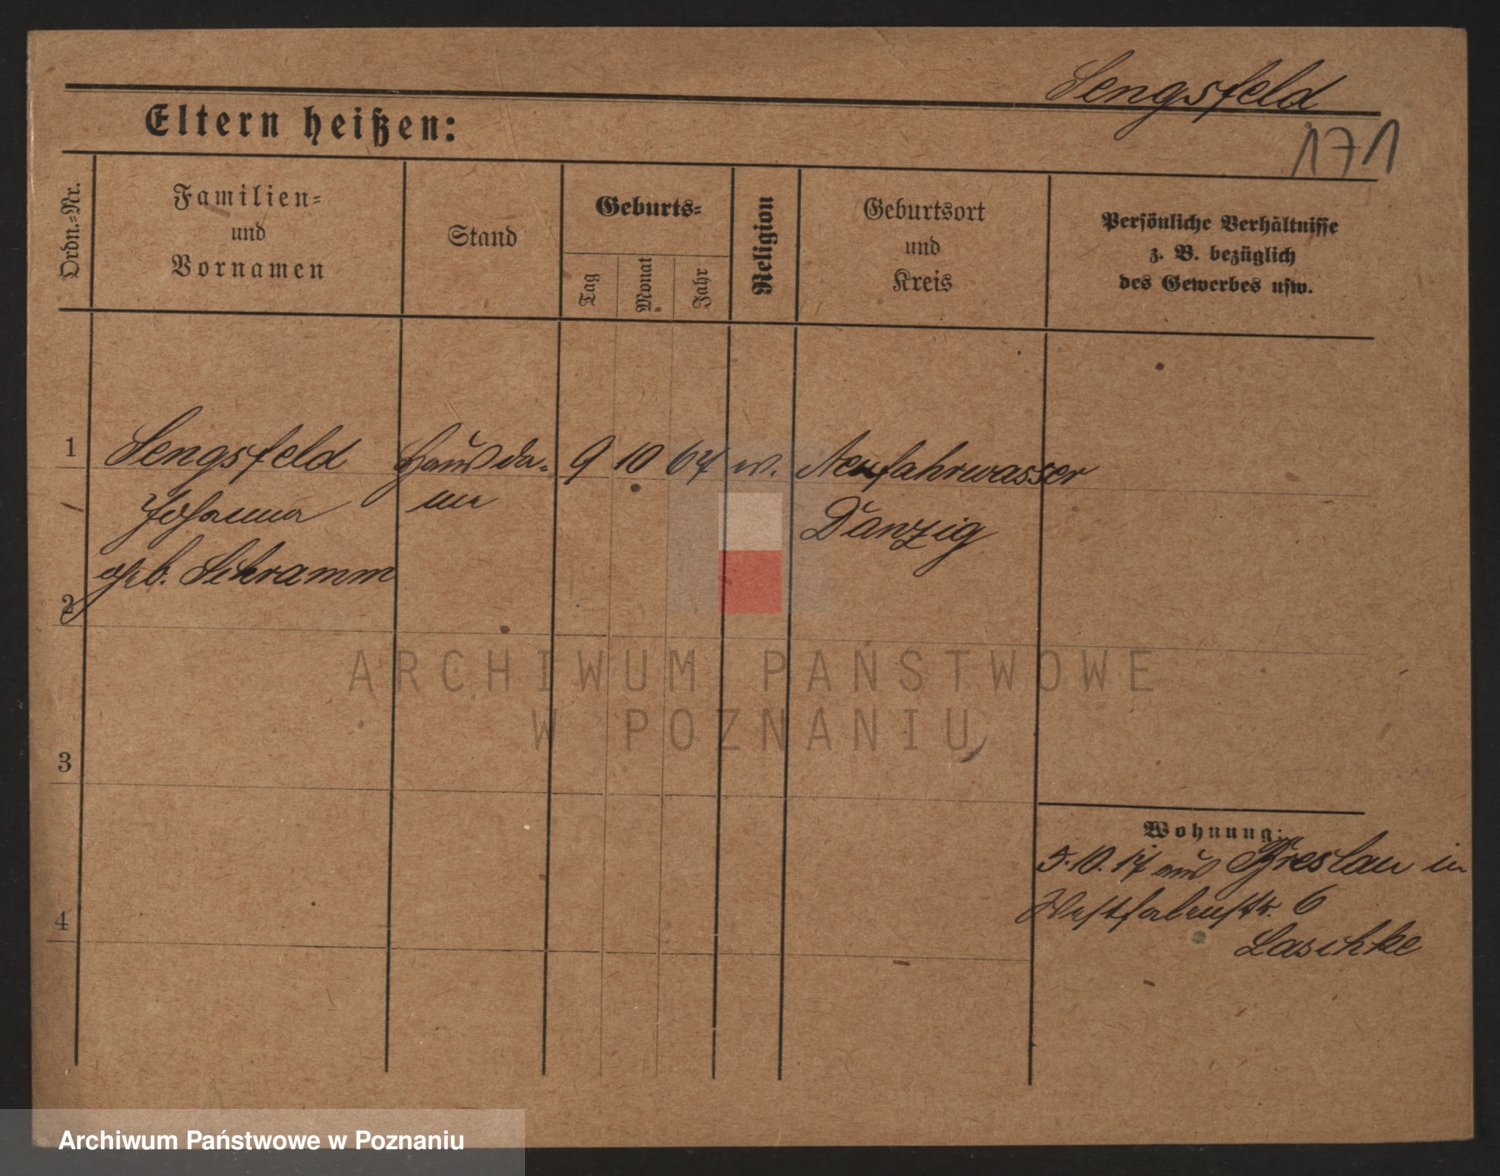 Sengsfeld
171
Eltern heißen:
Ordn.-Nr.
Familien-
und
Vornamen
Stand
Geburts-
Tag
Monat
Jahr
Religion
Geburtsort
und
Kreis
Persönliche Verhältnisse
z. B. bezüglich
des Gewerbes usw.
1 Sengsfeld Hausda- 9 10 64 ev. Neufahrwasser
Johanna me Danzig
geb. Schramm
2
ARCHIWUM PAŃSTWOWE
W POZNANIU
3
Wohnung:
5.10.17 aus Breslau in
4 Westfalenstr. 6
Laschke
Archiwum Państwowe w Poznaniu